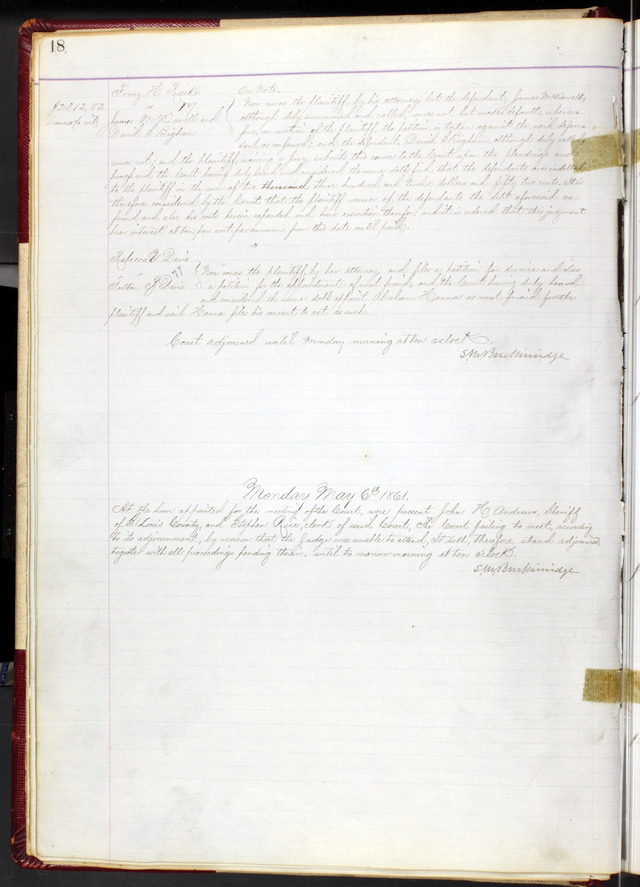 18
On Note.
$2312,52
Now comes the plaintiff, by his attorney, but the defendant, James
although duly summoned and called, comes not, but makes default, where-
fore, on motion of the plaintiff, the petition is taken against the said defen-
dant as confessed; and, the defendant, David S. Bigham, although duly called
James and
David S. Bigham
comes not; and the plaintiff, waiving a jury, submits this cause to the Court upon the pleadings and
proof and the Court having duly heard and considered the same, doth find, that the defendants are indebted
to the plaintiff in the sum of two thousand three hundred and twelve dollars and fifty two cents. It is
therefore considered by the Court that the plaintiff recover of the defendants the debt aforesaid as
found and also his costs herein expended and have execution therefor; and it is ordered that this judgment
bear interest at ten per cent per annum from this date until paid.
Rebecca V Davis
77
Davis
Now comes the plaintiff, by her attorney, and files a petition for divorce and also
a petition for the appointment of next friend, and the Court having duly heard
and considered the same doth appoint Abraham Hanna as next friend for the
plaintiff and said Hanna files his consent to act as such.
Court adjourned until Monday morning at ten oclock.
S.M. Breckinridge
Monday May 6th 1861.
At the hour appointed for the meeting of the Court, were present John H Andrews, Sheriff
of St Louis County, and Stephen Rice, clerk of said Court, The Court failing to meet, according
to its adjournment, by reason that the Judge was unable to attend, it doth, therefore, stand adjourned,
together with all proceedings pending therein, until to morrow morning at ten oclock.
S.M. Breckinridge